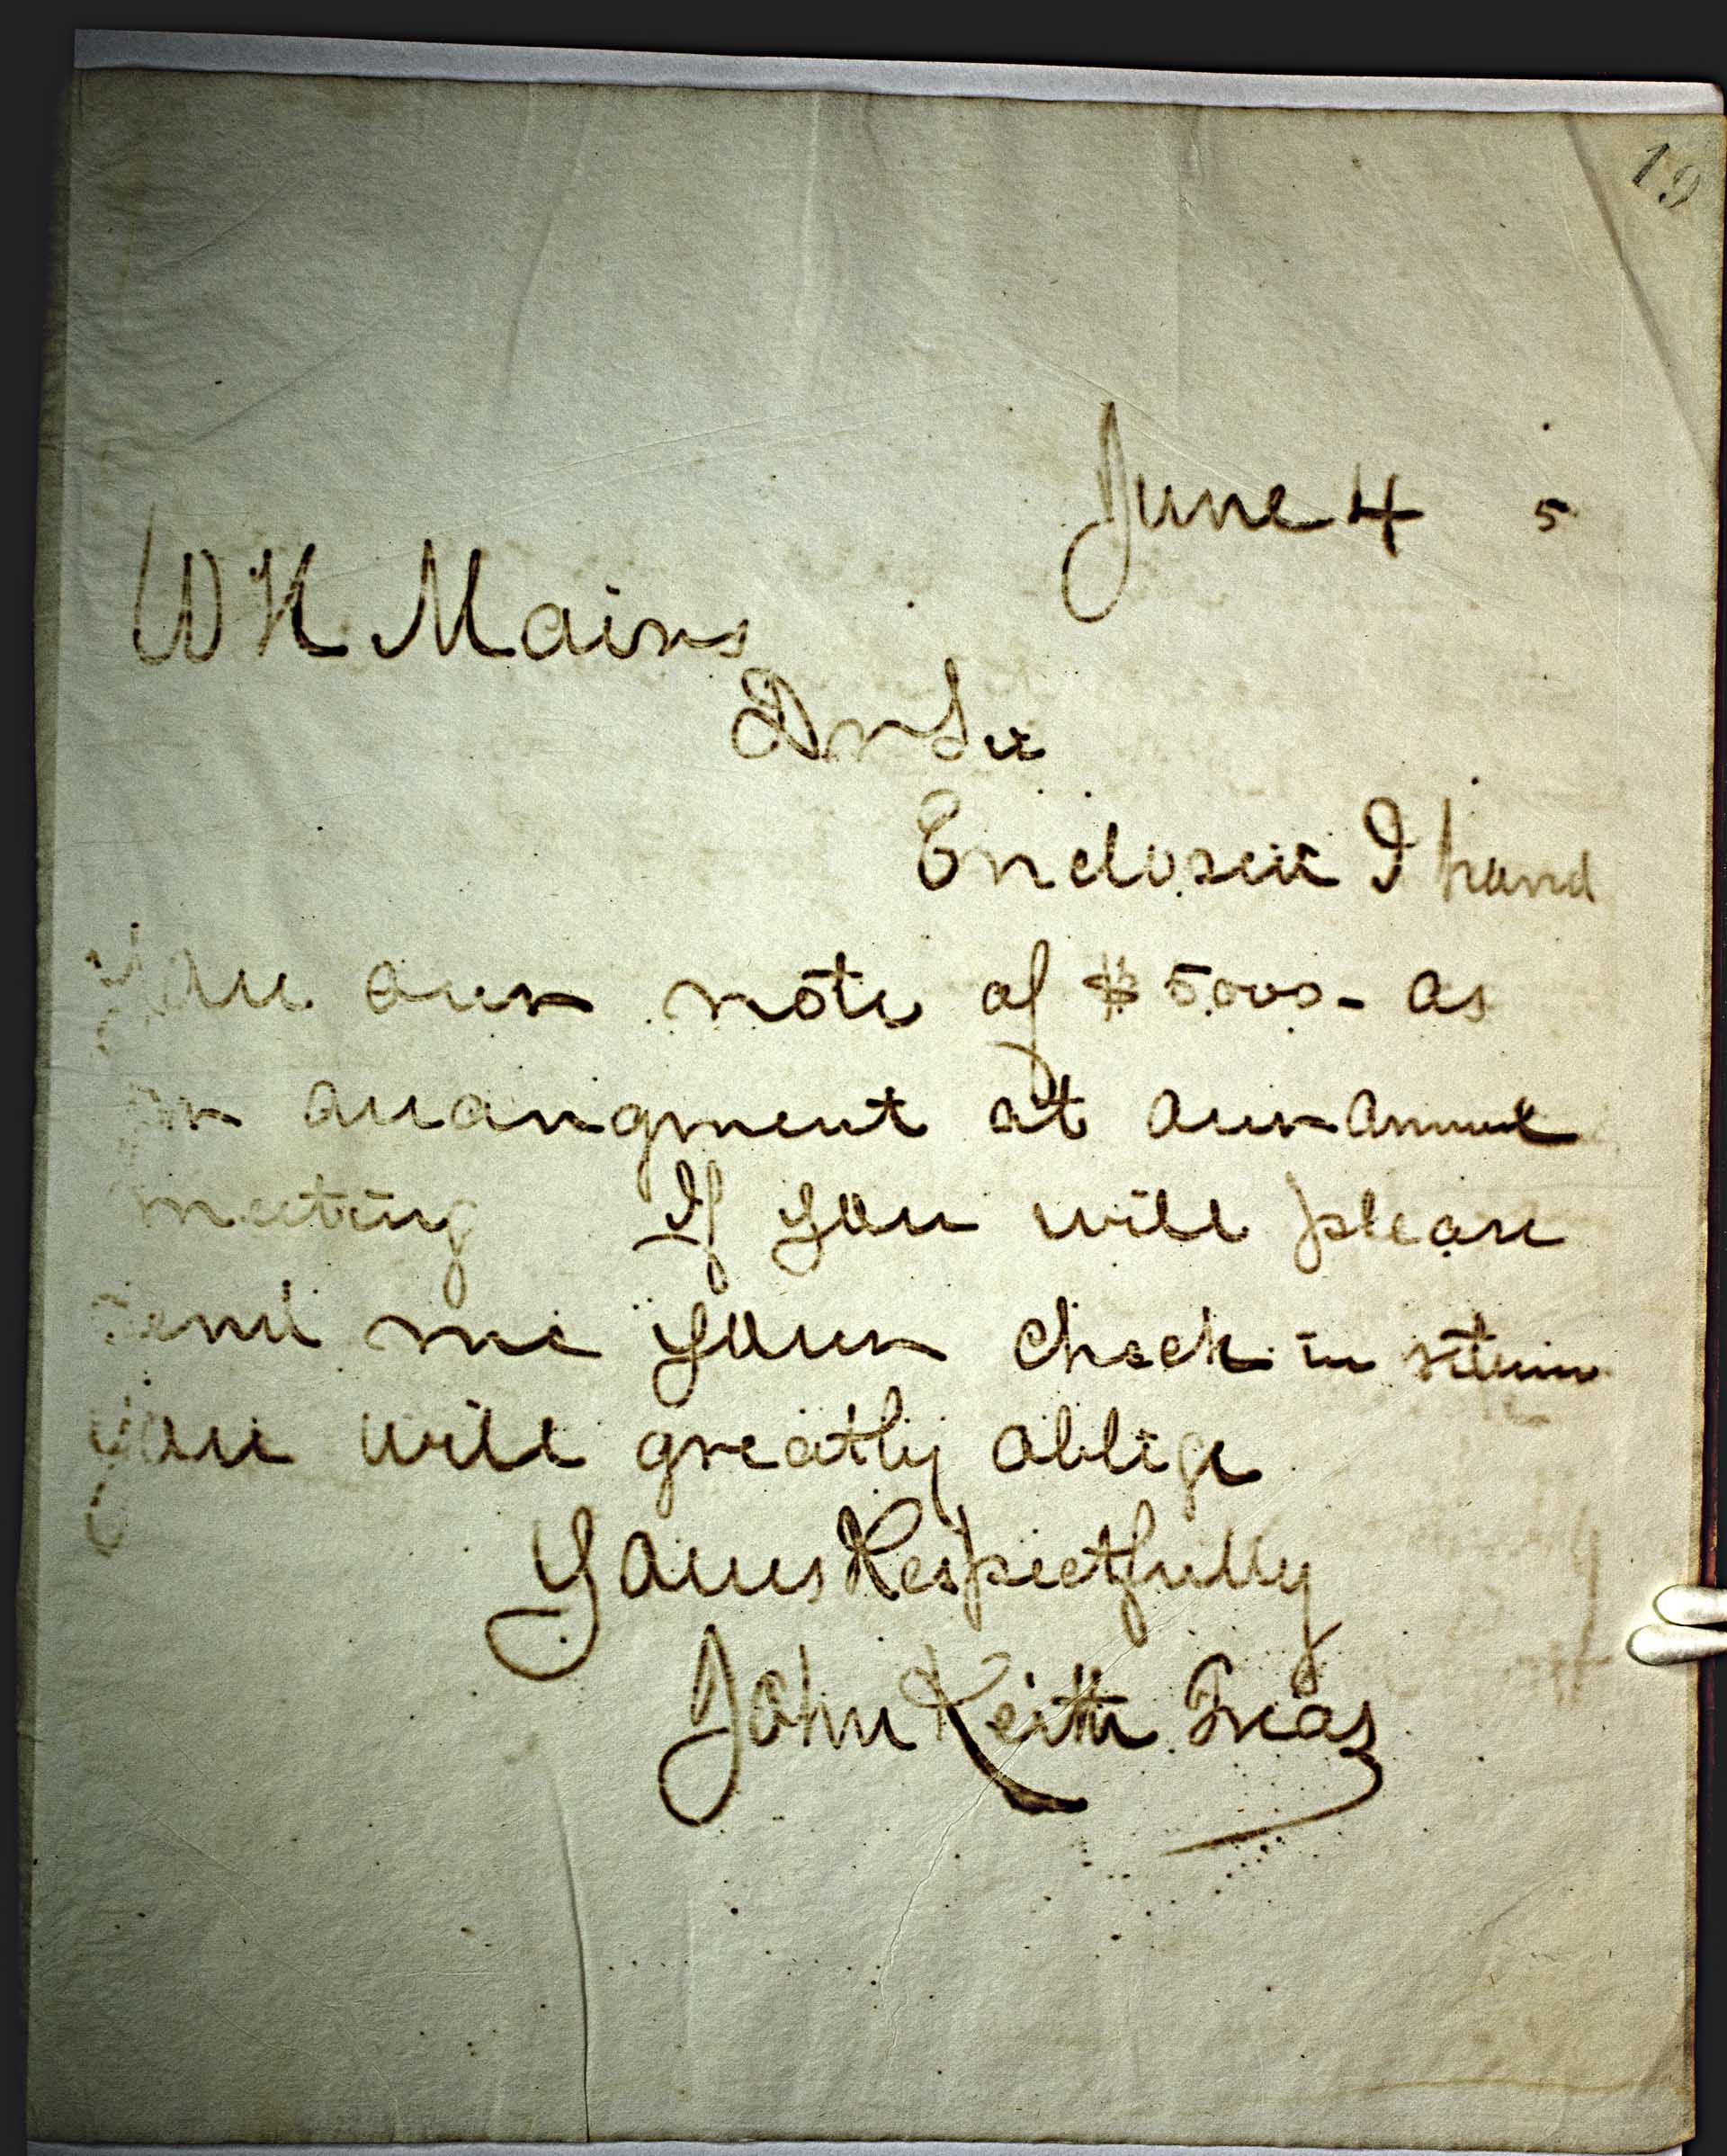 19
June 4 5
W H Mains
Dr Sir
Enclosed I hand
you our note of $5000- as
arrangment at our annual
meeting If you will please
send me your check in return
you will greatly oblige
Yours Respectfully
John Keith Treas